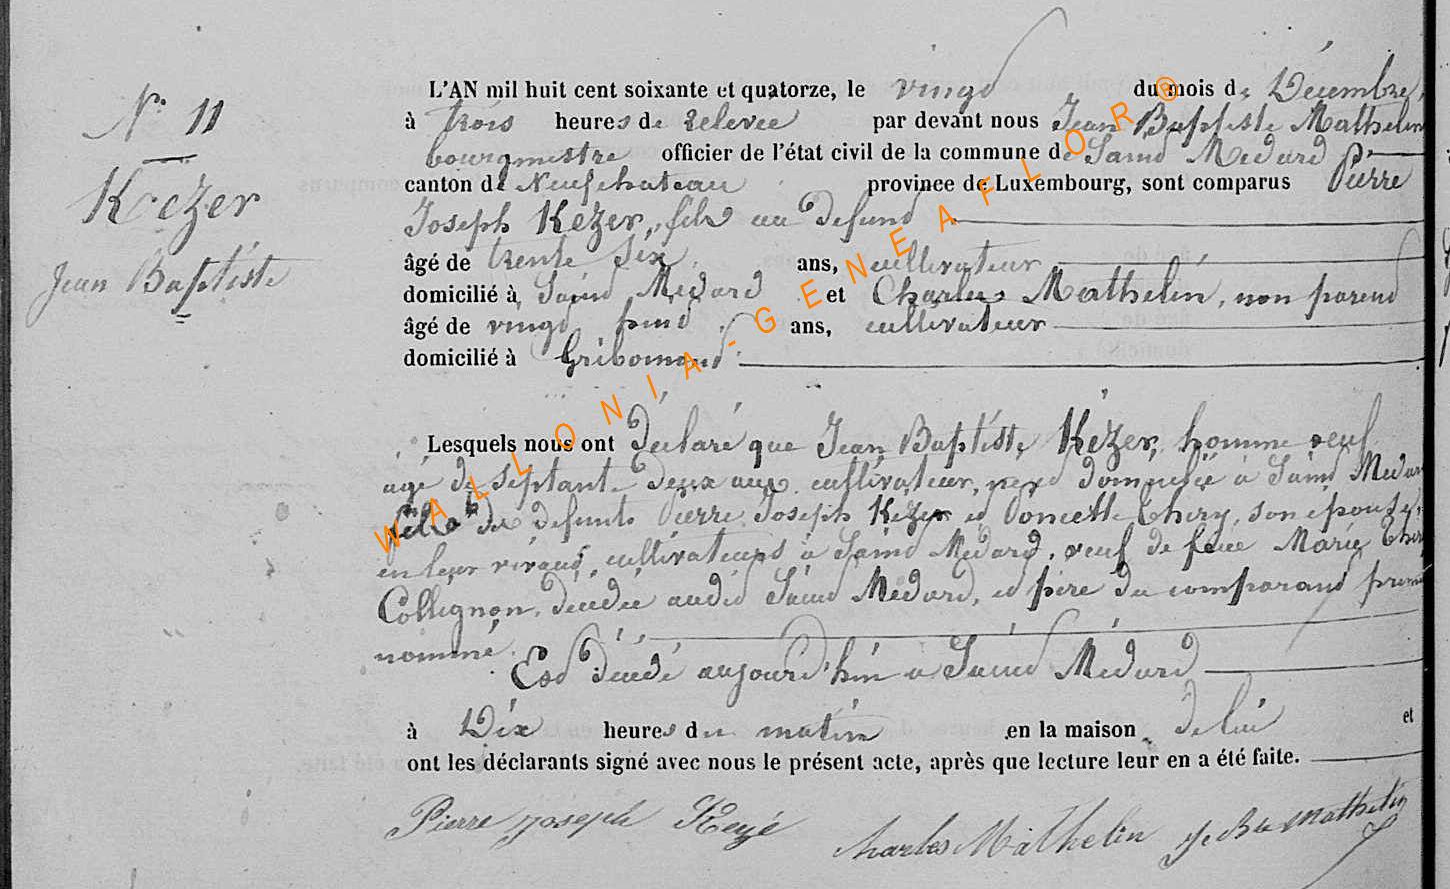 N° 11
Kezer
Jean Baptiste
L'AN mil huit cent soixante et quatorze, le vingt du mois de Décembre,
à trois heures de relevée par devant nous Jean Baptiste Mathelin
bourgmestre officier de l'état civil de la commune de Saint Medard
canton de Neufchateau province de Luxembourg, sont comparus Pierre
Joseph Kezer, fils au defunt
âgé de trente six ans, cultivateur
domicilié à Saint Medard et Charles Mathelin, non parent
âgé de vingt ans, cultivateur
domicilié à Gribomont
Lesquels nous ont déclaré que Jean Baptiste Kézer, homme veuf
agé de septante deux ans, cultivateur, domicilié à Saint Medard
des defunts Pierre Joseph Kezer et Poncette Thiry, son épouse,
en leur vivant, cultivateurs à Saint Medard, veuf de feue Marie
Collignon, décédée audit Saint Medard, et père du comparant premier
nommé.
Est décédé aujourd'hui à Saint Médard
à Dix heures du matin en la maison de lui et
ont les déclarants signé avec nous le présent acte, après que lecture leur en a été faite.
Pierre Joseph Kezé Charles Mathelin J Bte Mathelin
WALLONIA-GENEAFLOR®